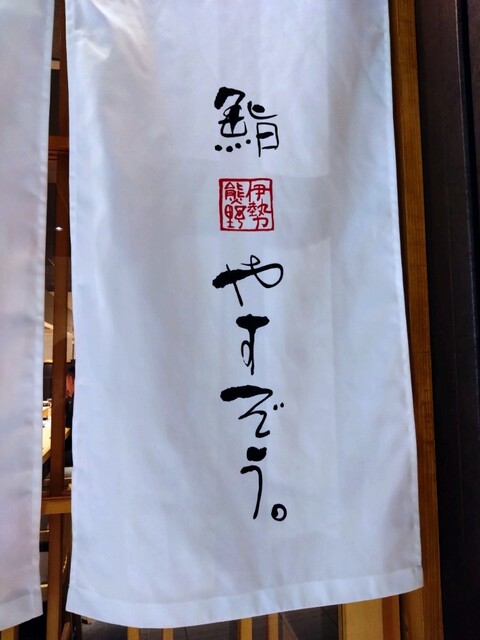 鮨
伊勢
熊野
やすぞう。